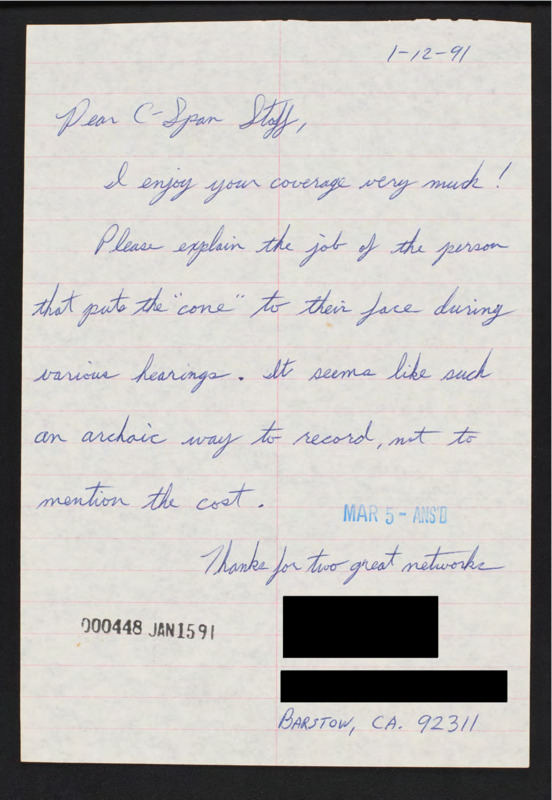 1-12-91
Dear C-Span Staff,
I enjoy your coverage very much!
Please explain the job of the person
that puts the "cone" to their face during
various hearings. It seems like such
an archaic way to record, not to
mention the cost.
MAR 5 - ANS'D
Thanks for two great networks
000448 JAN1591
BARSTOW, CA. 92311